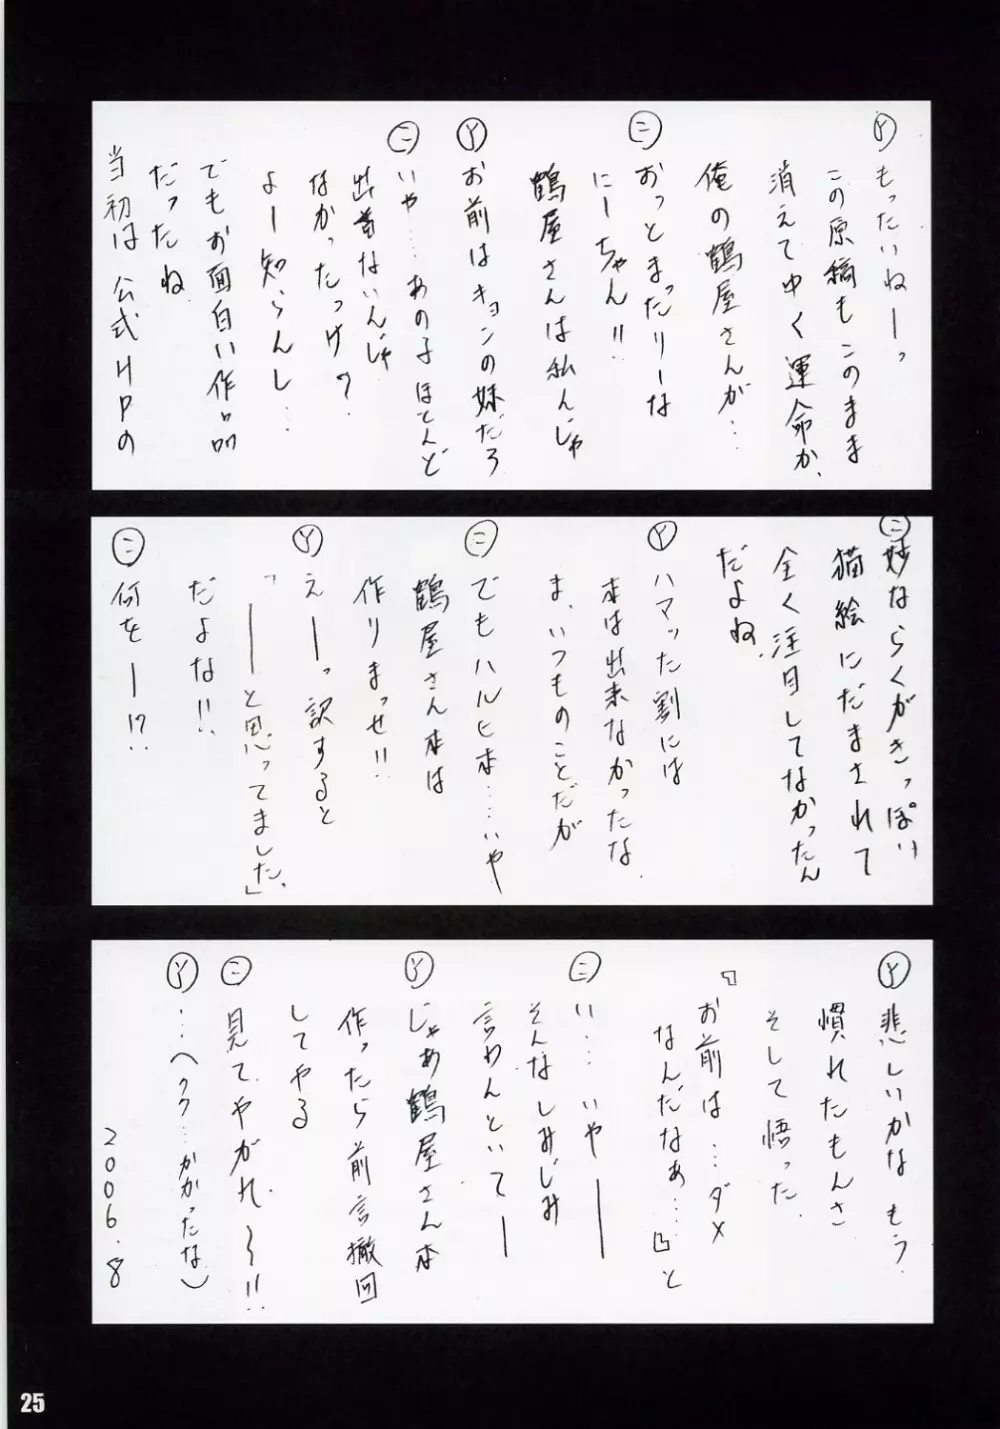 ソ もったいねーっ
この原稿もこのまま
消えてゆく運命か、
俺の鶴屋さんが…
ニ おっとまったりーな
にーちゃん!!
鶴屋さんは私んじゃ
ソ お前はキョンの妹だろ
ニ いや……あの子ほとんど
出番ないんじゃ
なかったっけ?
よー知らんし…
でもお面白い作品
だったね
当初は公式HPの
ニ 妙ならくがきっぽい
猫絵にだまされて
全く注目してなかったん
だよね、
ソ ハマッた割には
本は出来なかったな
ま、いつものことだが
ニ でもハルヒ本……いや
鶴屋さん本は
作りまっせ!!
ソ えーっ訳すると
「――と思ってました。」
だよな!!
ニ 何をー!?
ソ 悲しいかなもう
慣れたもんさ
そして悟った
「お前は…ダメ
なんだなぁ…」と
ニ い…いや――
そんなしみじみ
言わんといて―
ソ じゃあ鶴屋さん本
作ったら前言撤回
してやる
ニ 見てやがれ~!!
ソ …ヘッヘッ…かかったな)
2006.8
25